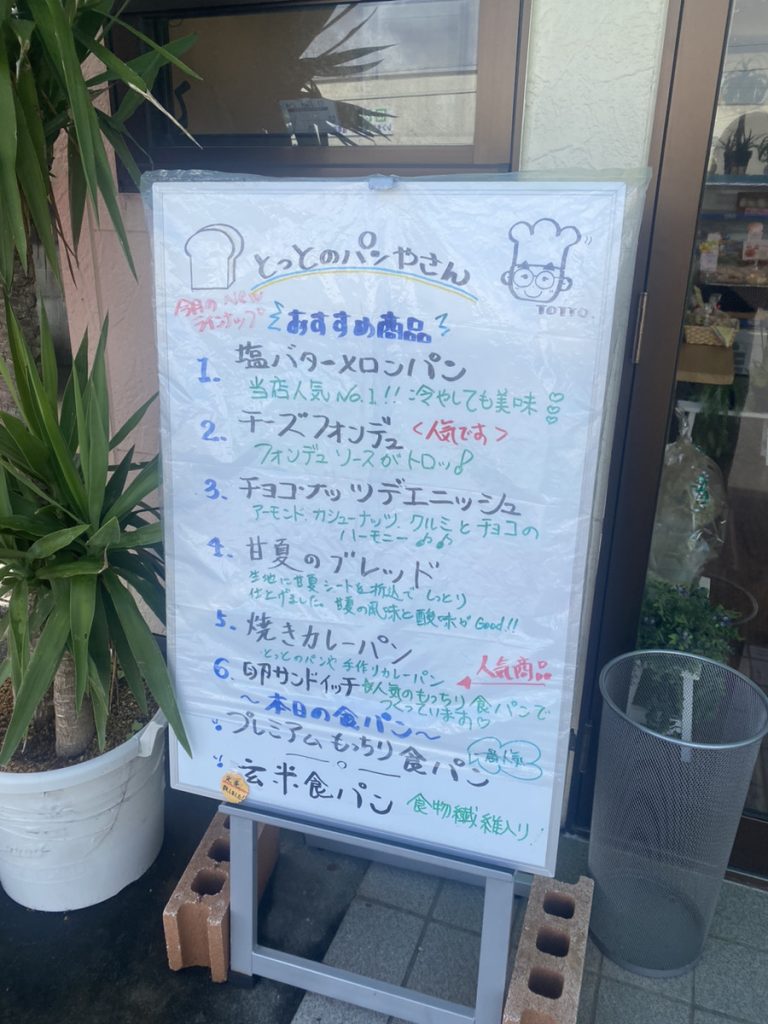 とっとのパンやさん
TOTTO.
今月のNew
ラインナップ
おすすめ商品
1. 塩バターメロンパン
当店人気No.1!! 冷やしても美味♡
2. チーズフォンデュ <人気です>
フォンデュソースがトロッ♪
3. チョコナッツデエニッシュ
アーモンド、カシューナッツ、クルミとチョコの
ハーモニー♪♪
4. 甘夏のブレッド
生地に甘夏シートを折込でしっとり
仕上げました。甘夏の風味と酸味がGood!!
5. 焼きカレーパン
とっとのパンや 手作りカレーパン
人気商品
6. 卵サンドイッチ 大人気のもっちり食パンで
つくっています♡
〜本日の食パン〜
プレミアムもっちり食パン
玄米食パン 食物繊維入り!